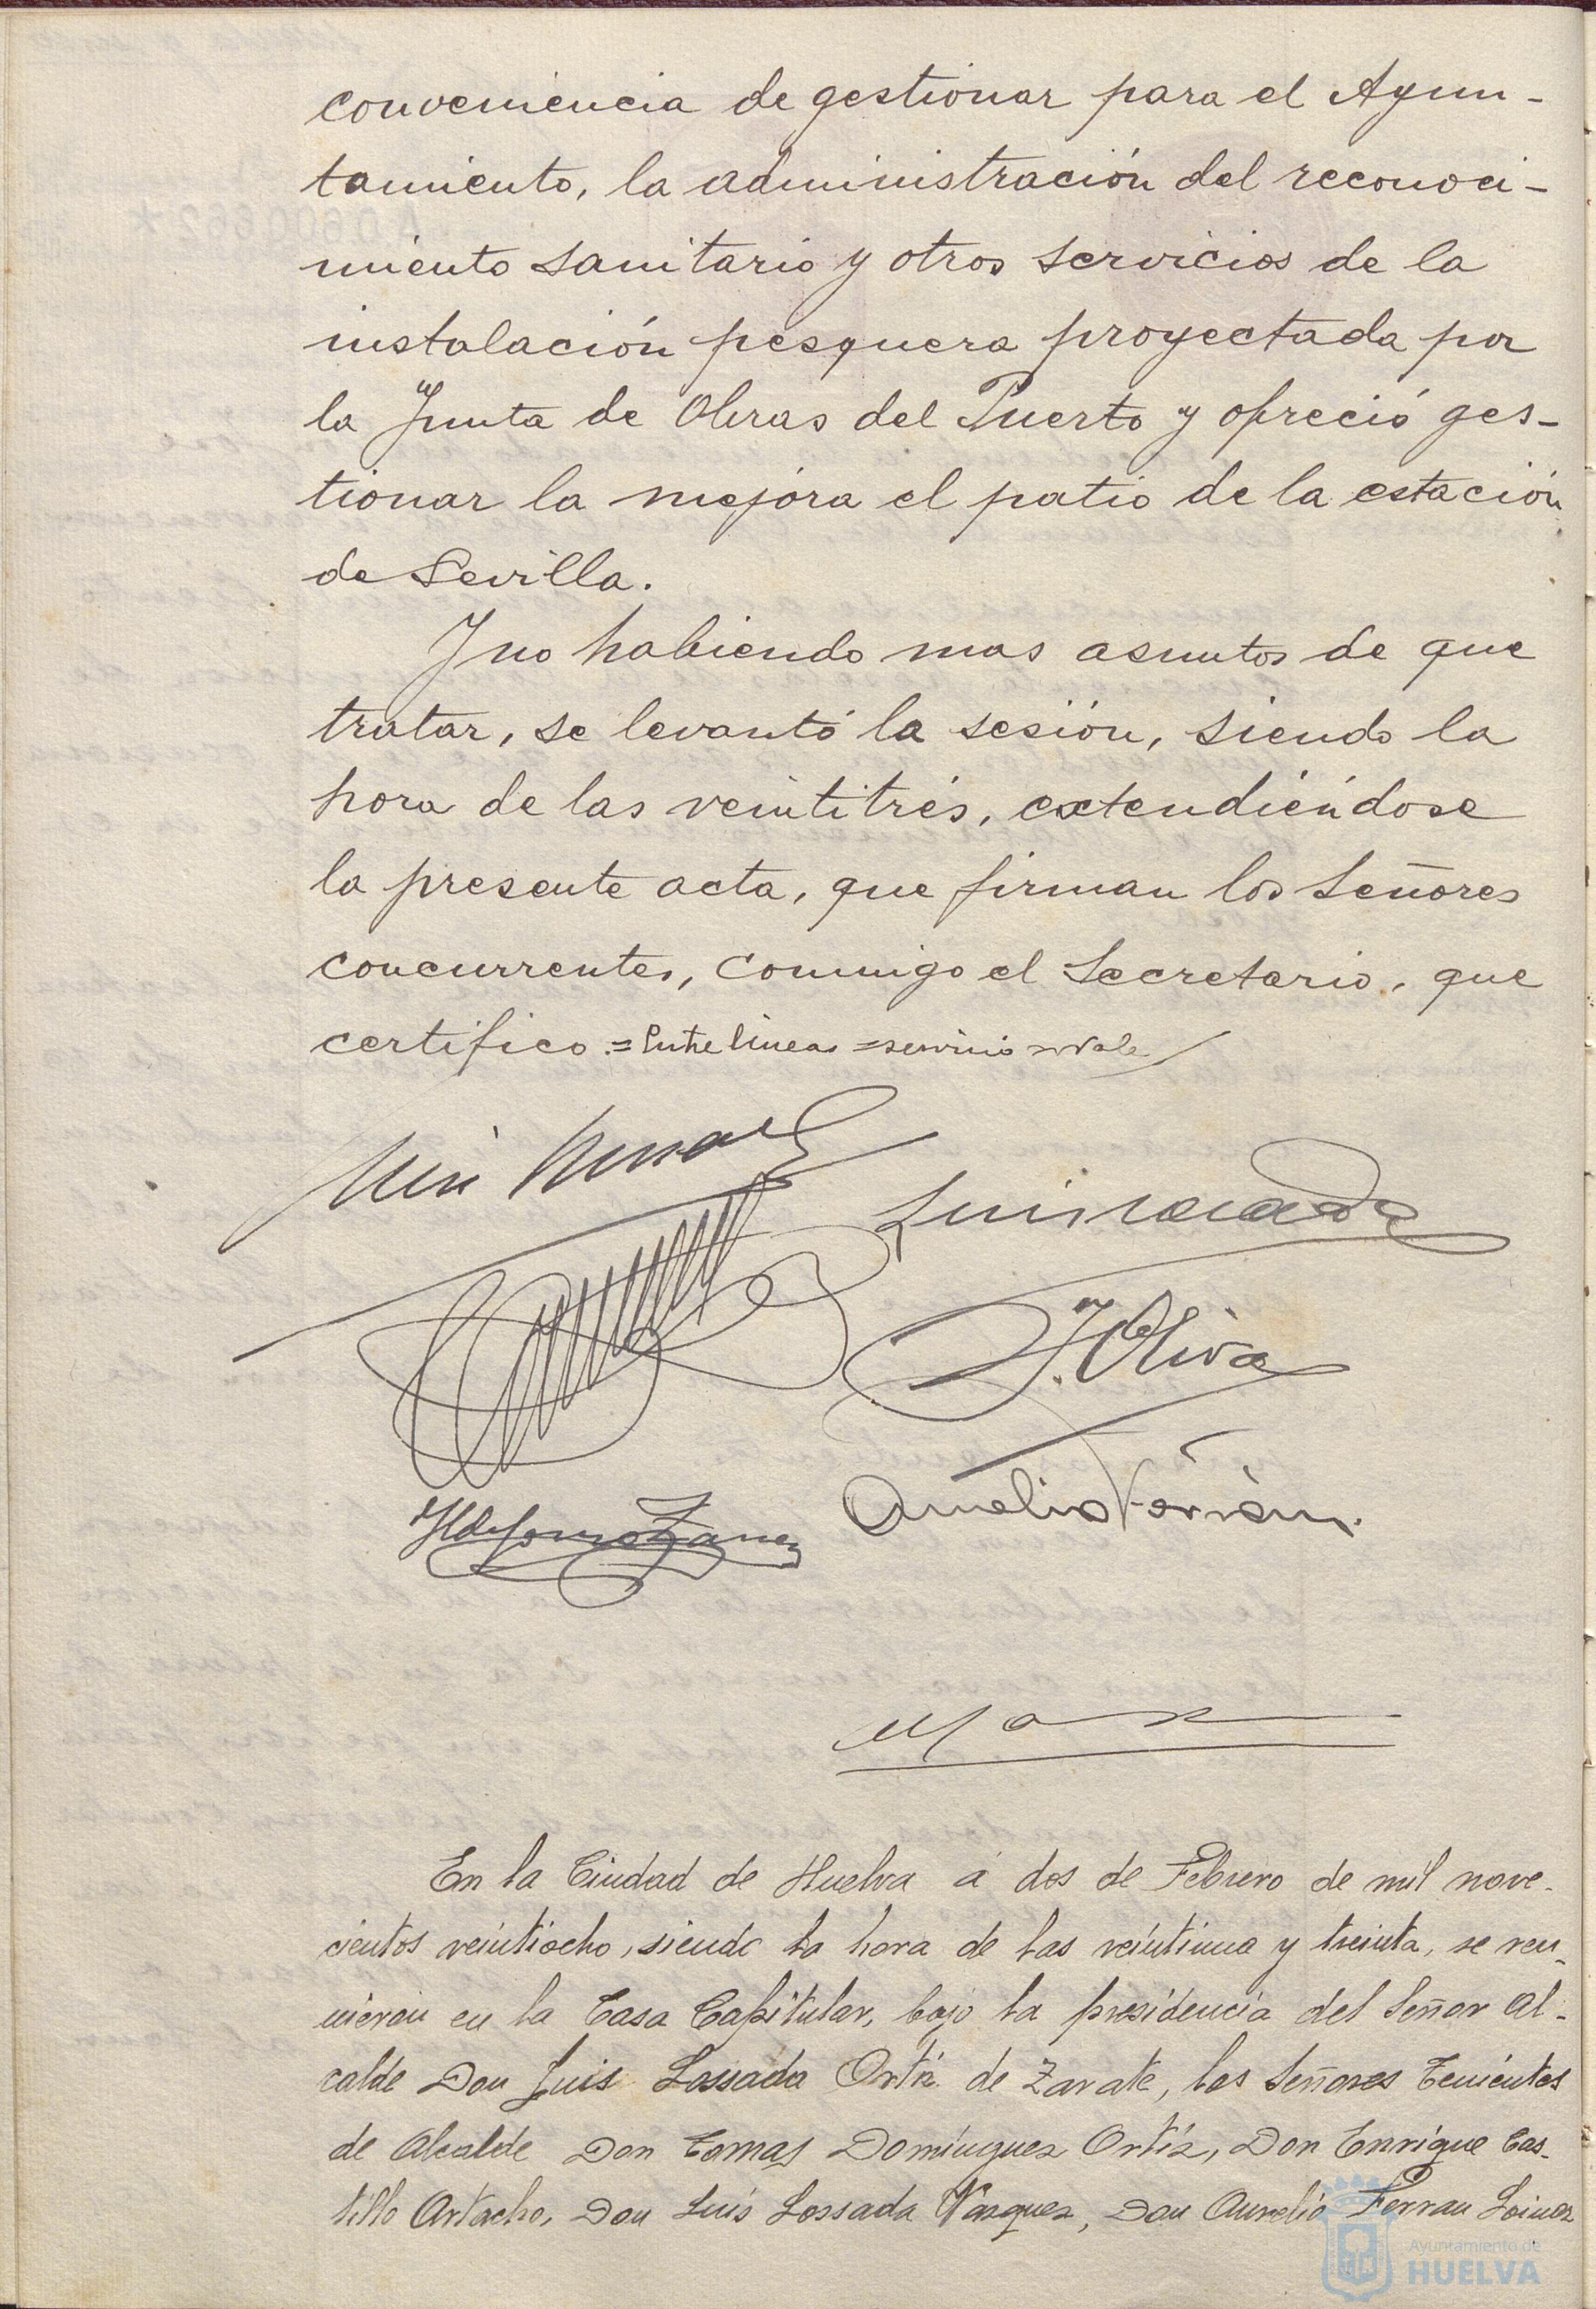 conveniencia de gestionar para el Ayun-
tamiento, la administración del reconoci-
miento sanitario y otros servicios de la
instalación pesquera proyectada por
la Junta de Obras del Puerto y ofreció ges-
tionar la mejora el patio de la estación
de Sevilla.
Y no habiendo mas asuntos de que
tratar, se levantó la sesión, siendo la
hora de las veintitrés, extendiéndose
la presente acta, que firman los Señores
concurrentes, conmigo el Secretario, que
certifico.=Entre lineas=servicio=Vale
Luis
J. Oliva
Aurelio Ferrán.
Ildefonso
En la Ciudad de Huelva á dos de Febrero de mil nove-
cientos veintiocho, siendo la hora de las veintiuna y treinta, se reu-
nieron en la Casa Capitular, bajo la presidencia del Señor Al-
calde Don Luis Lossada Ortiz de Zarate, los Señores Tenientes
de Alcalde Don Tomas Dominguez Ortiz, Don Enrique Cas-
tillo Artacho, Don Luis Lossada Vázquez, Don Aurelio Ferran Loinaz
Ayuntamiento de
HUELVA